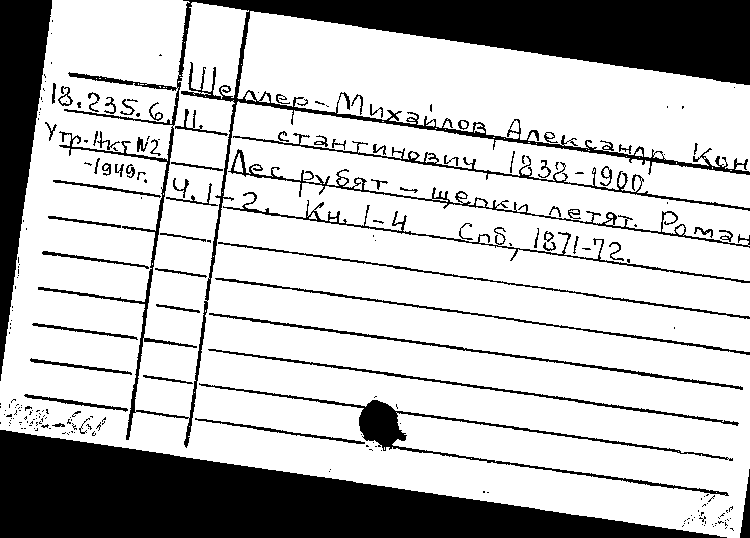 Шеллер-Михайлов, Александр Кон
18.235.6. II. стантинович, 1838-1900.
Утр. Акт №2 Лес рубят – щепки летят. Роман
-1949г. Ч. 1-2. Кн. 1-4. Спб., 1871-72.